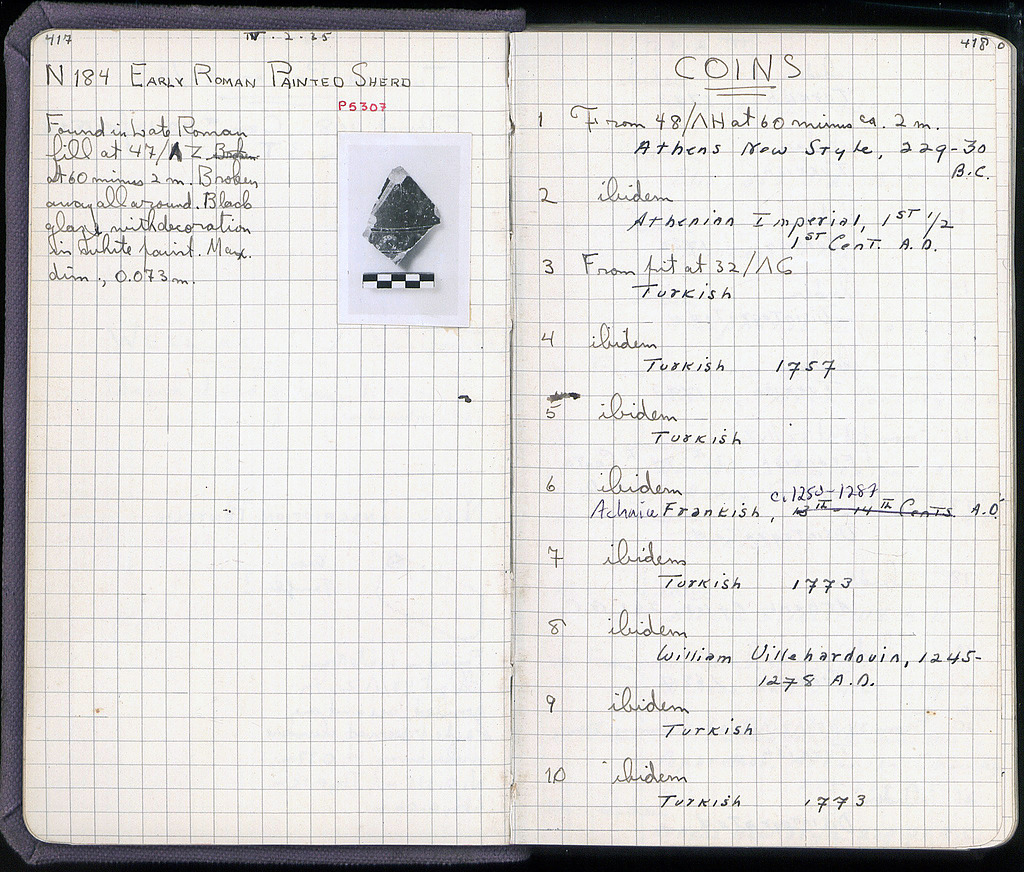 417
IV . 2 . 35
N 184 EARLY ROMAN PAINTED SHERD
P5307
Found in Late Roman
fill at 47/ΛZ Broken
at 60 minus 2 m. Broken
away all around. Black
glaze with decoration
in white paint. Max.
dim., 0.073 m.
418
COINS
1 From 48/ΛH at 60 minus ca. 2 m.
Athens New Style, 229-30
B.C.
2 ibidem
Athenian Imperial, 1ST 1/2
1ST Cent. A.D.
3 From pit at 32/ΛϚ
Turkish
4 ibidem
Turkish 1757
5 ibidem
Turkish
6 ibidem
c. 1250-1287
Achaia Frankish, 13TH - 14TH Cents. A.D.
7 ibidem
Turkish 1773
8 ibidem
William Villehardouin, 1245-
1278 A.D.
9 ibidem
Turkish
10 ibidem
Turkish 1773